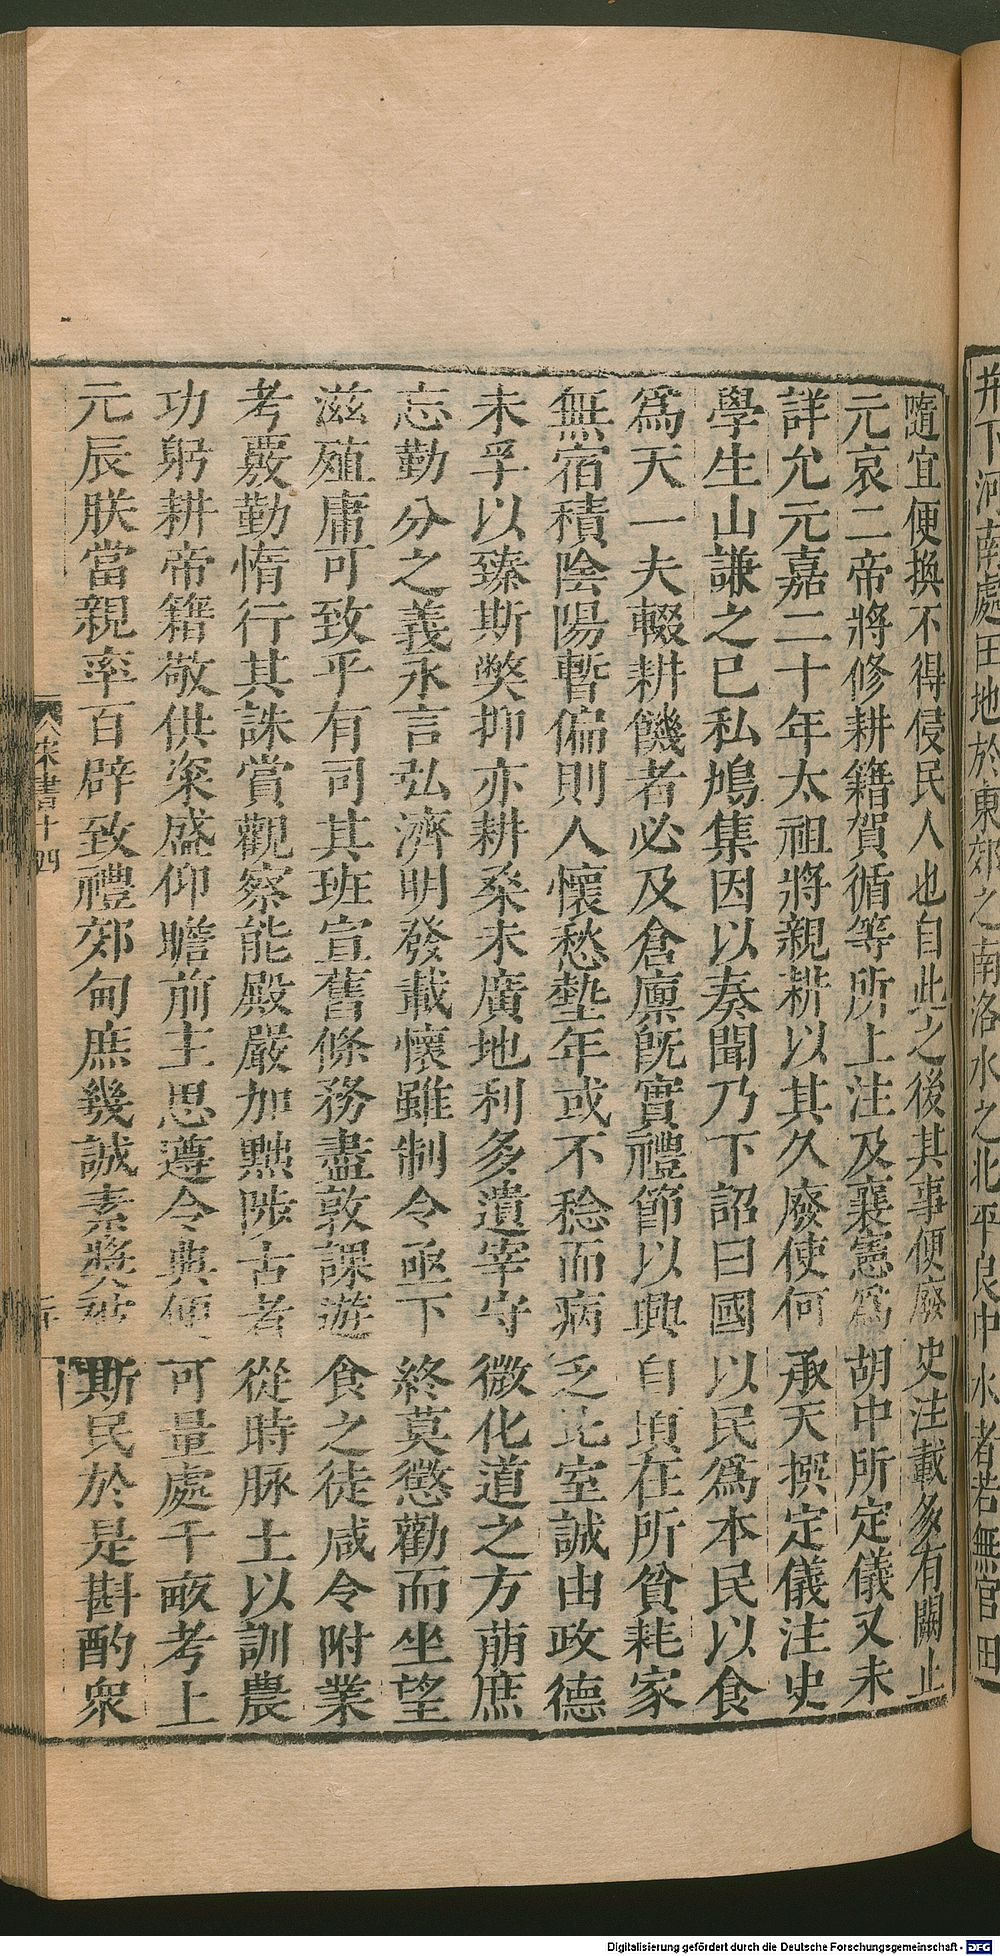 并下河南處田地於東郊之南洛水之北平良中水者若無官田
隨宜便換不得侵民人也自此之後其事便廢史注載多有闕止
元哀二帝將修耕籍賀循等所上注及裴憲爲胡中所定儀又未
詳允元嘉二十年太祖將親耕以其久廢使何承天撰定儀注史
學生山謙之已私鳩集因以奏聞乃下詔曰國以民爲本民以食
爲天一夫輟耕饑者必及倉廩旣實禮節以興自頃在所貧耗家
無宿積陰陽暫偏則人懷愁墊年或不稔而病乏比室誠由政德
未孚以臻斯獘抑亦耕桑未廣地利多遺宰守微化道之方萠庶
忘勤分之義永言弘濟明發載懷雖制令亟下終莫懲勸而坐望
滋殖庸可致乎有司其班宣舊條務盡敦課遊食之徒咸令附業
考覈勤惰行其誅賞觀察能殿嚴加黜陟古者從時脉土以訓農
功躬耕帝籍敬供粢盛仰瞻前王思遵令典便可量處千畝考上
元辰朕當親率百辟致禮郊甸庶幾誠素奬被斯民於是斟酌衆
宋書十四
Digitalisierung gefördert durch die Deutsche Forschungsgemeinschaft - DFG